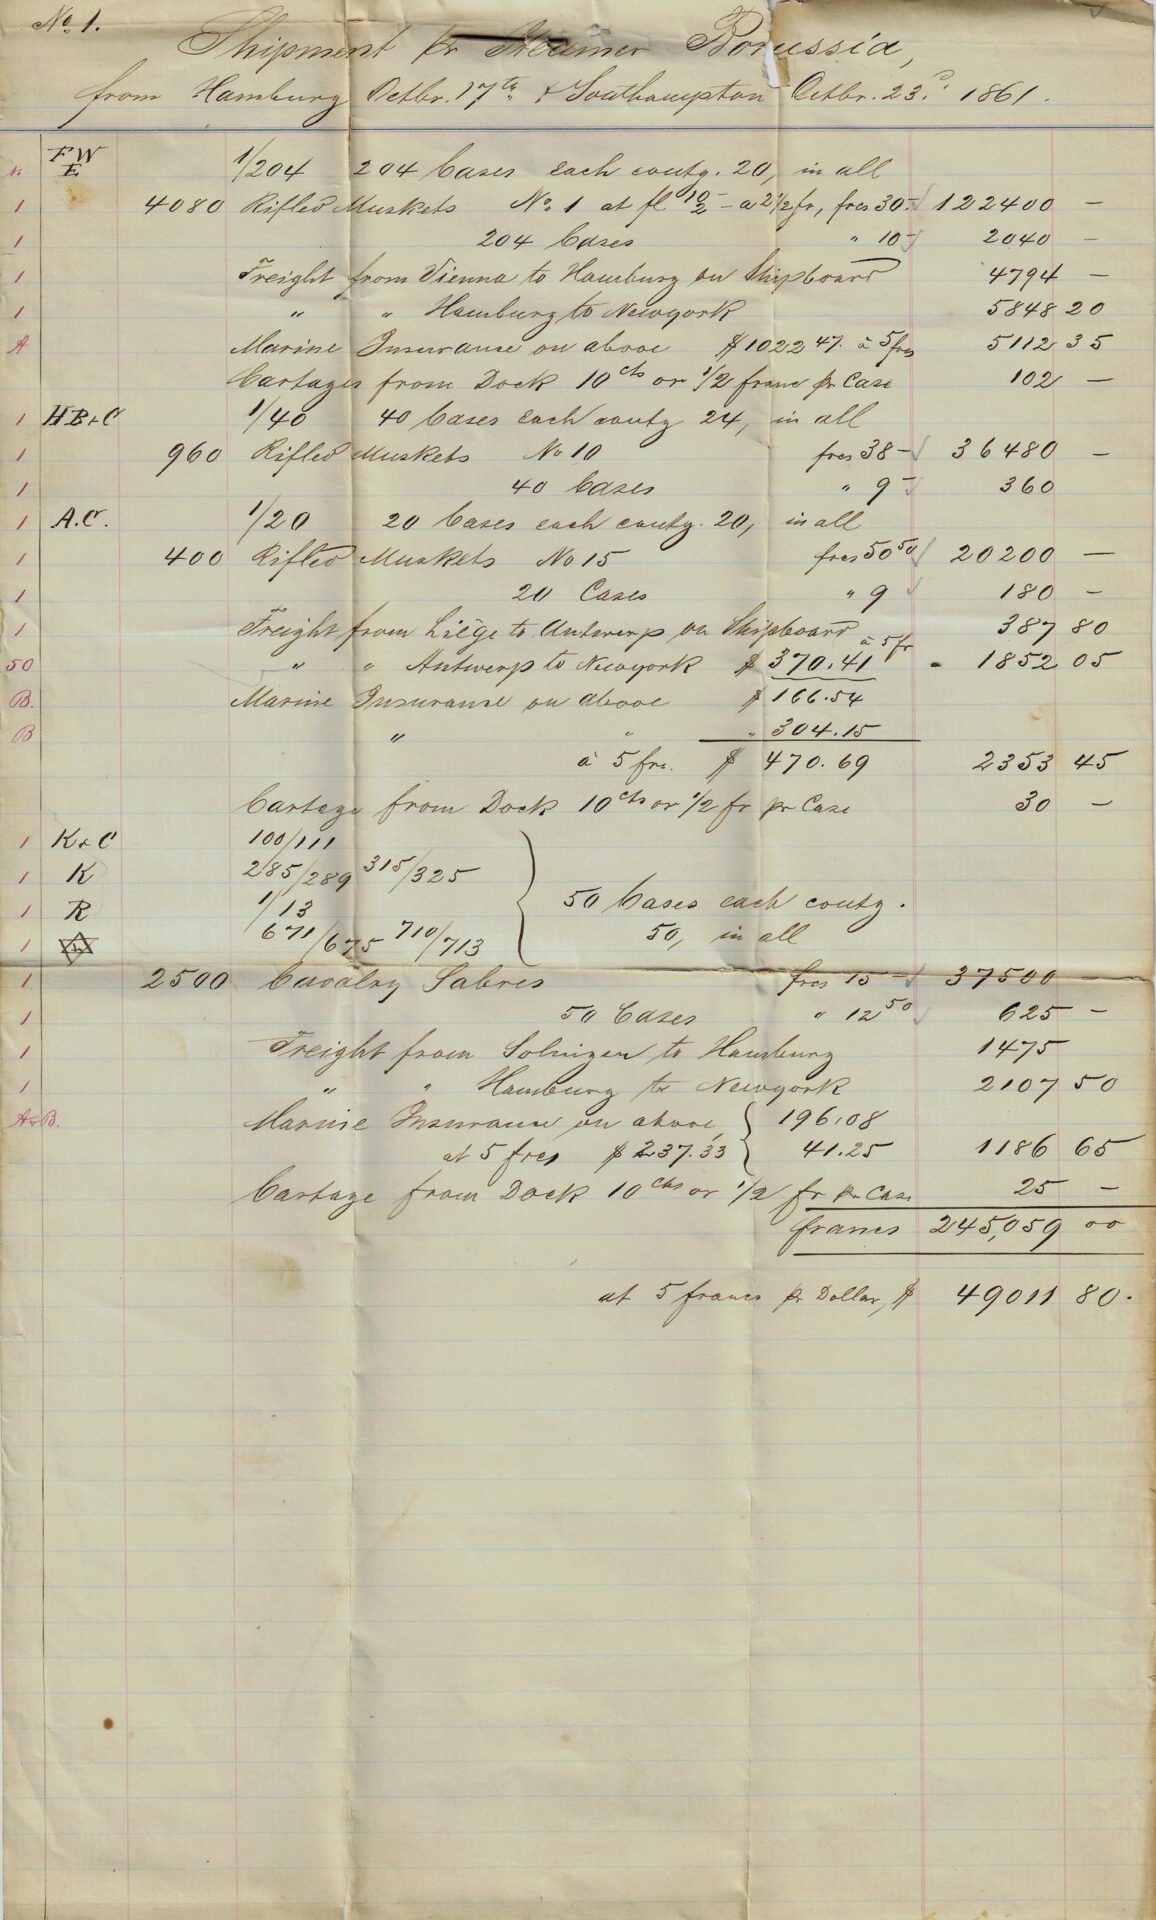 No. 1.
Shipment pr Steamer Borussia,
from Hamburg Octbr. 17th & Southampton Octbr. 23d 1861.
FW
E 1/204 204 Cases each contg. 20, in all
1 4080 Rifled Muskets No. 1 at fl 10/2 - a 2 1/2 fr, frcs 30.- 122400 -
1 204 Cases " 10- 2040 -
1 Freight from Vienna to Hamburg on Shipboard 4794 -
1 " " Hamburg to Newyork 5848 20
A Marine Insurance on above $1022 47. à 5 frcs 5112 35
Cartages from Dock 10 cts or 1/2 franc pr Case 102 -
1 HB&C 1/40 40 Cases each contg 24, in all
1 960 Rifled Muskets No 10 frcs 38- 36480 -
1 40 Cases " 9- 360
1 A.C. 1/20 20 Cases each contg. 20, in all
1 400 Rifled Muskets No 15 frcs 50 50 20200 -
1 20 Cases " 9 180 -
1 Freight from Liége to Antwerp on Shipboard 387 80
50 " " Antwerp to Newyork $ 370.41 à 5 fr 1852 05
B. Marine Insurance on above $ 166.54
B " " " 304.15
à 5 frc. $ 470.69 2353 45
Cartage from Dock 10 cts or 1/2 fr pr Case 30 -
1 K&C 100/111
1 K 285/289 315/325
1 R 1/13 50 Cases each contg.
1 671/675 710/713 50, in all
1 2500 Cavalry Sabres frcs 15 - 37500 -
1 50 Cases " 12 50 625 -
1 Freight from Solingen to Hamburg 1475
1 " " Hamburg to Newyork 2107 50
A&B. Marine Insurance on above, 196.08
at 5 frcs $ 237.33 41.25 1186 65
Cartage from Dock 10 cts or 1/2 fr pr Case 25 -
francs 245,059 00
at 5 francs pr Dollar, $ 49011 80.